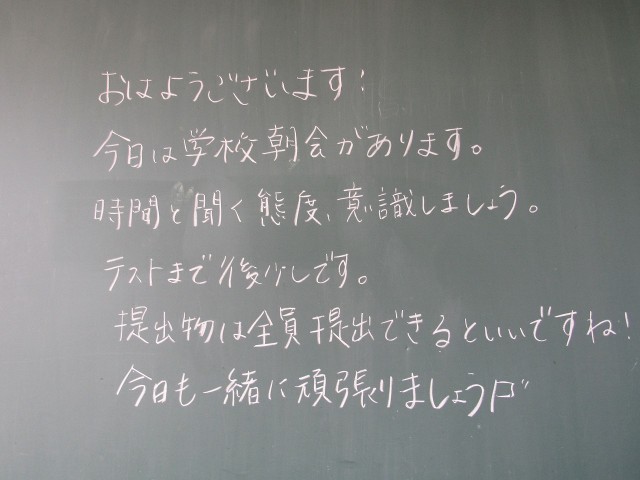 おはようございます!
今日は学校朝会があります。
時間と聞く態度、意識しましょう。
テストまで後少しです。
提出物は全員提出できるといいですね!
今日も一緒に頑張りましょう